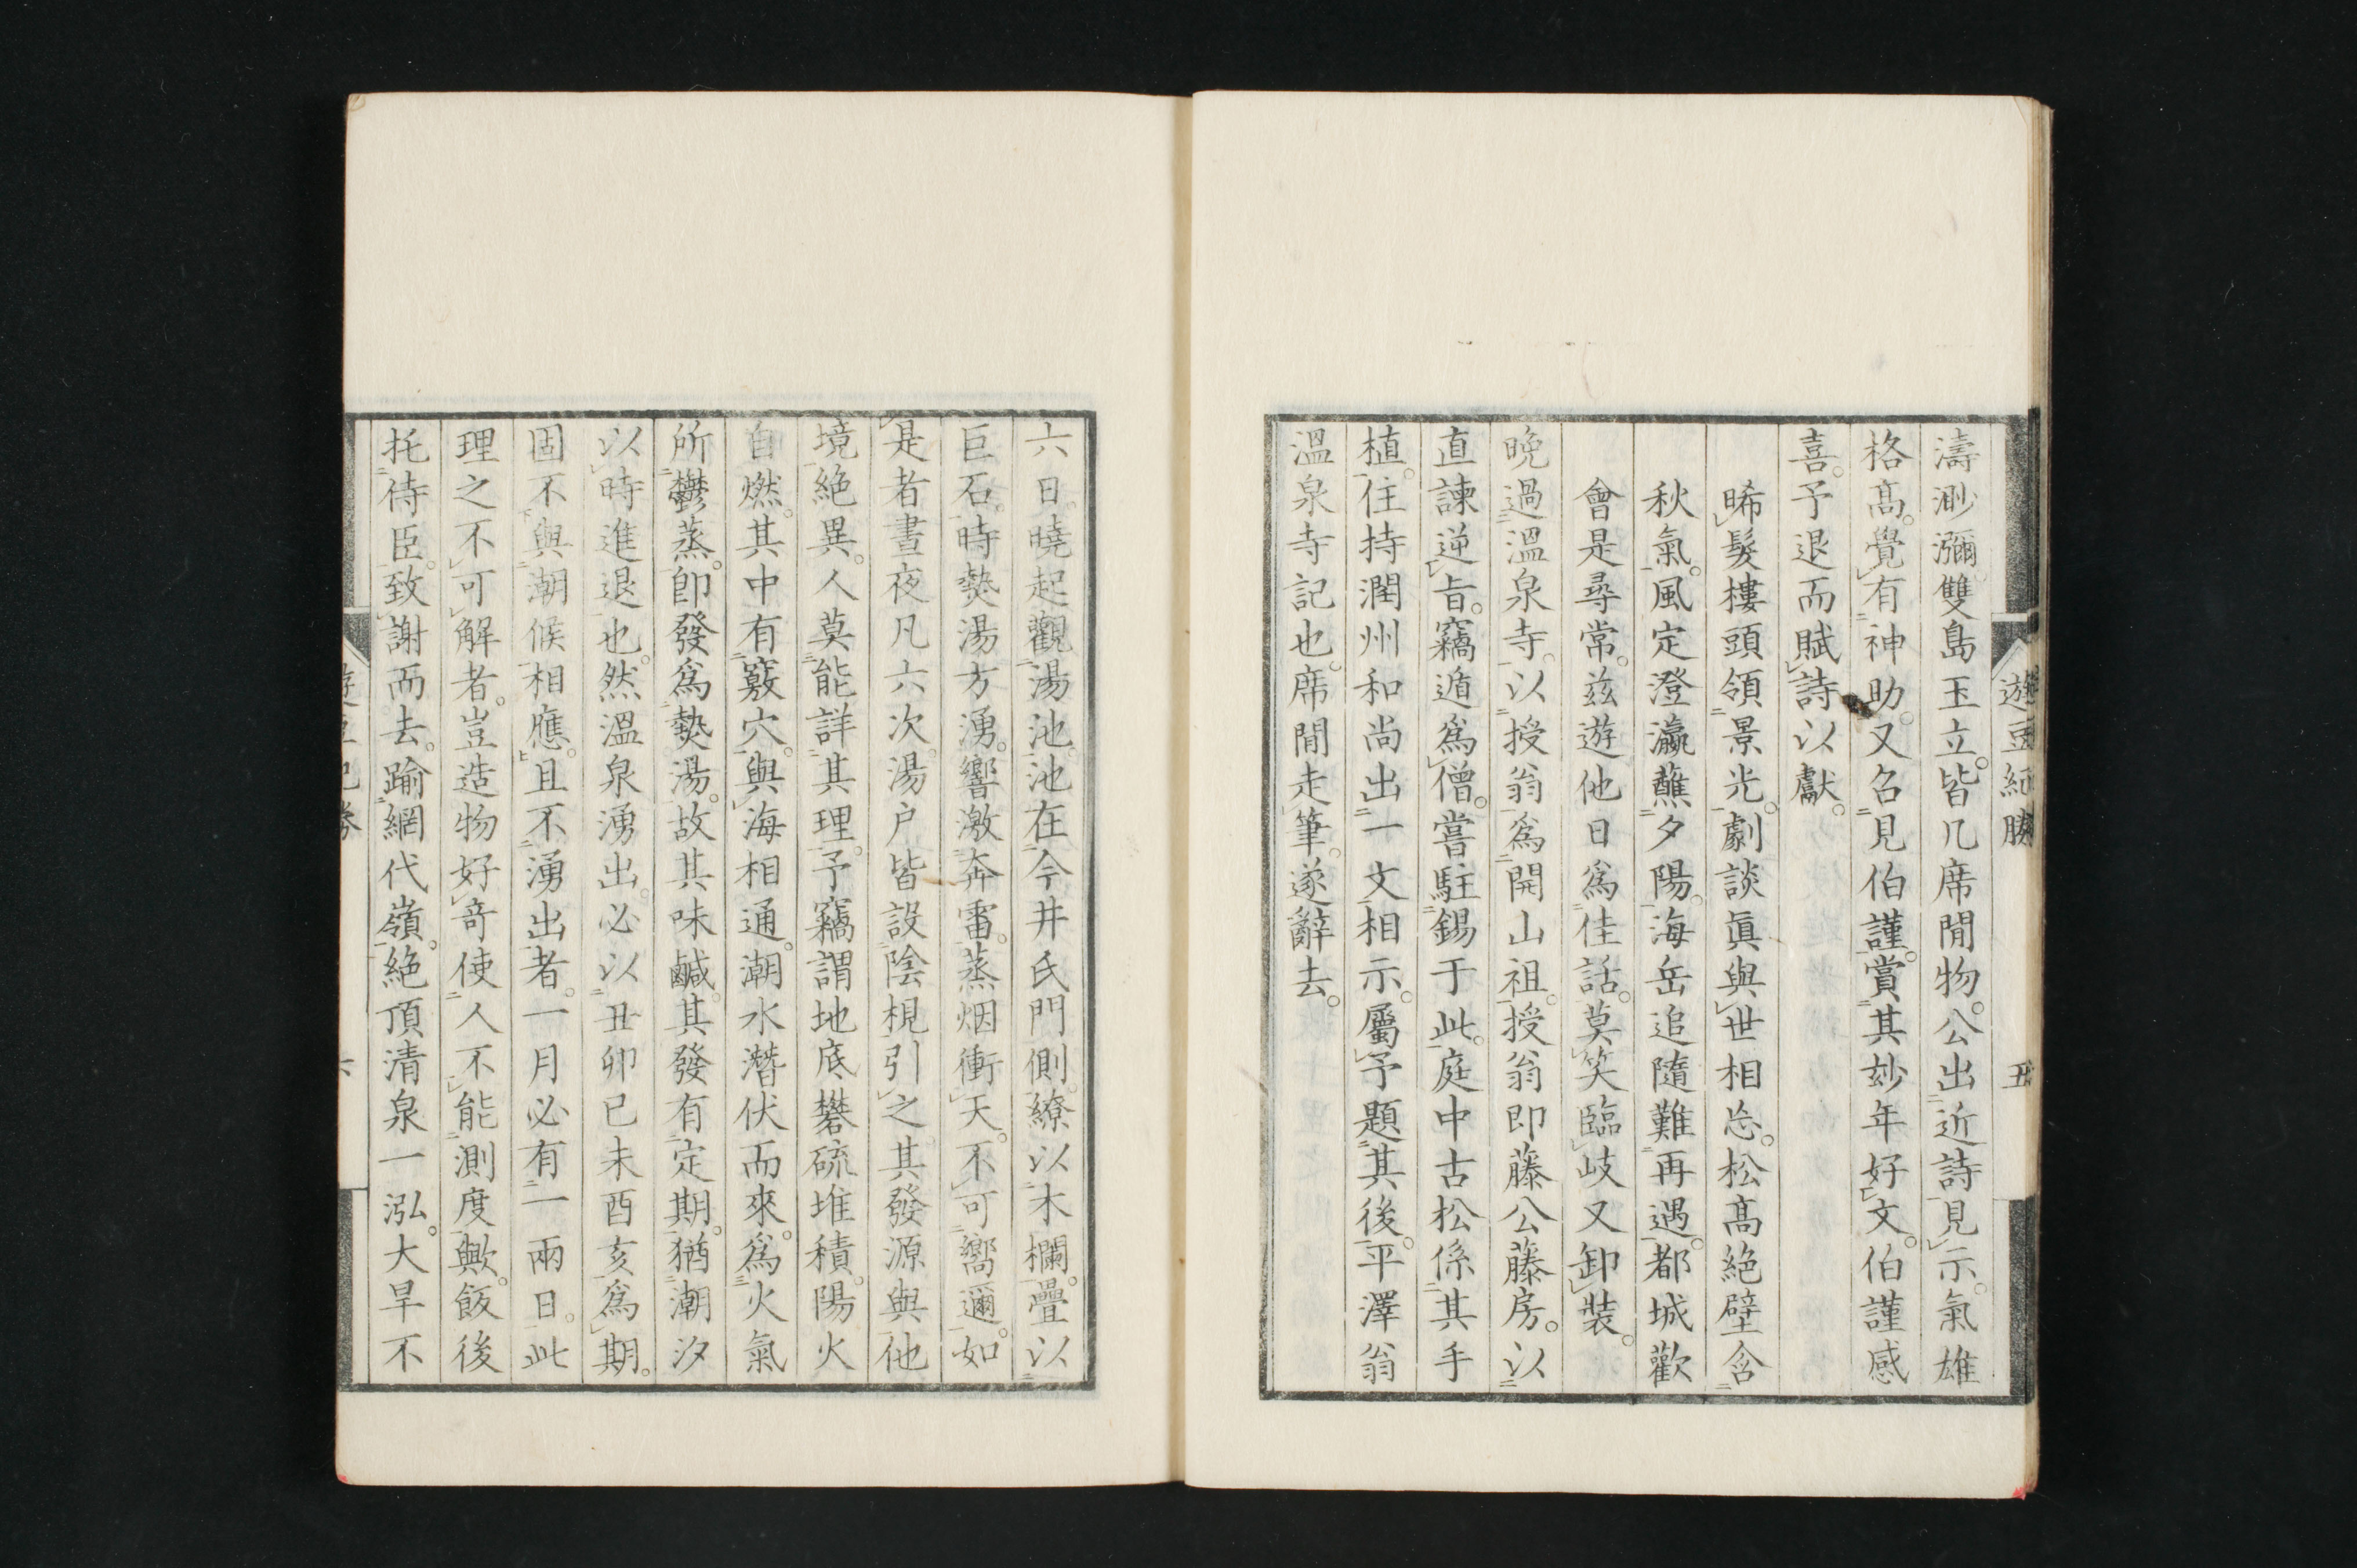 遊豆紀勝
五
濤渺瀰雙島玉立。皆几席間物。公出近詩見示。氣雄
格高。覺有神助。又召見伯謹。賞其妙年好文。伯謹感
喜。予退而賦詩以獻。
晞髮樓頭領景光。劇談眞與世相忘。松高絕壁含
秋氣。風定澄瀛蘸夕陽。海岳追隨難再遇。都城歡
會是尋常。茲遊他日爲佳話。莫笑臨岐又卸裝。
晚過溫泉寺。以授翁爲開山祖。授翁即藤公藤房。以
直諫逆旨。竊遁爲僧。嘗駐錫于此。庭中古松係其手
植。住持潤州和尚出一文相示。屬予題其後。平澤翁
溫泉寺記也。席間走筆。遂辭去。
六日。曉起觀湯池。池在今井氏門側。繚以木欄。疊以
巨石。時熱湯方湧。響激奔雷。蒸烟衝天。不可嚮邇。如
是者晝夜凡六次。湯戶皆設陰梘引之。其發源與他
境絕異。人莫能詳其理。予竊謂地底礬硫堆積。陽火
自燃。其中有竅穴。與海相通。潮水潛伏而來。爲火氣
所鬱蒸。卽發爲熱湯。故其味鹹。其發有定期。猶潮汐
以時進退也。然溫泉湧出。必以丑卯巳未酉亥爲期。
固不與潮候相應。且不湧出者。一月必有一兩日。此
理之不可解者。豈造物好奇使人不能測度歟。飯後
托待臣。致謝而去。踰網代嶺。絕頂清泉一泓。大旱不